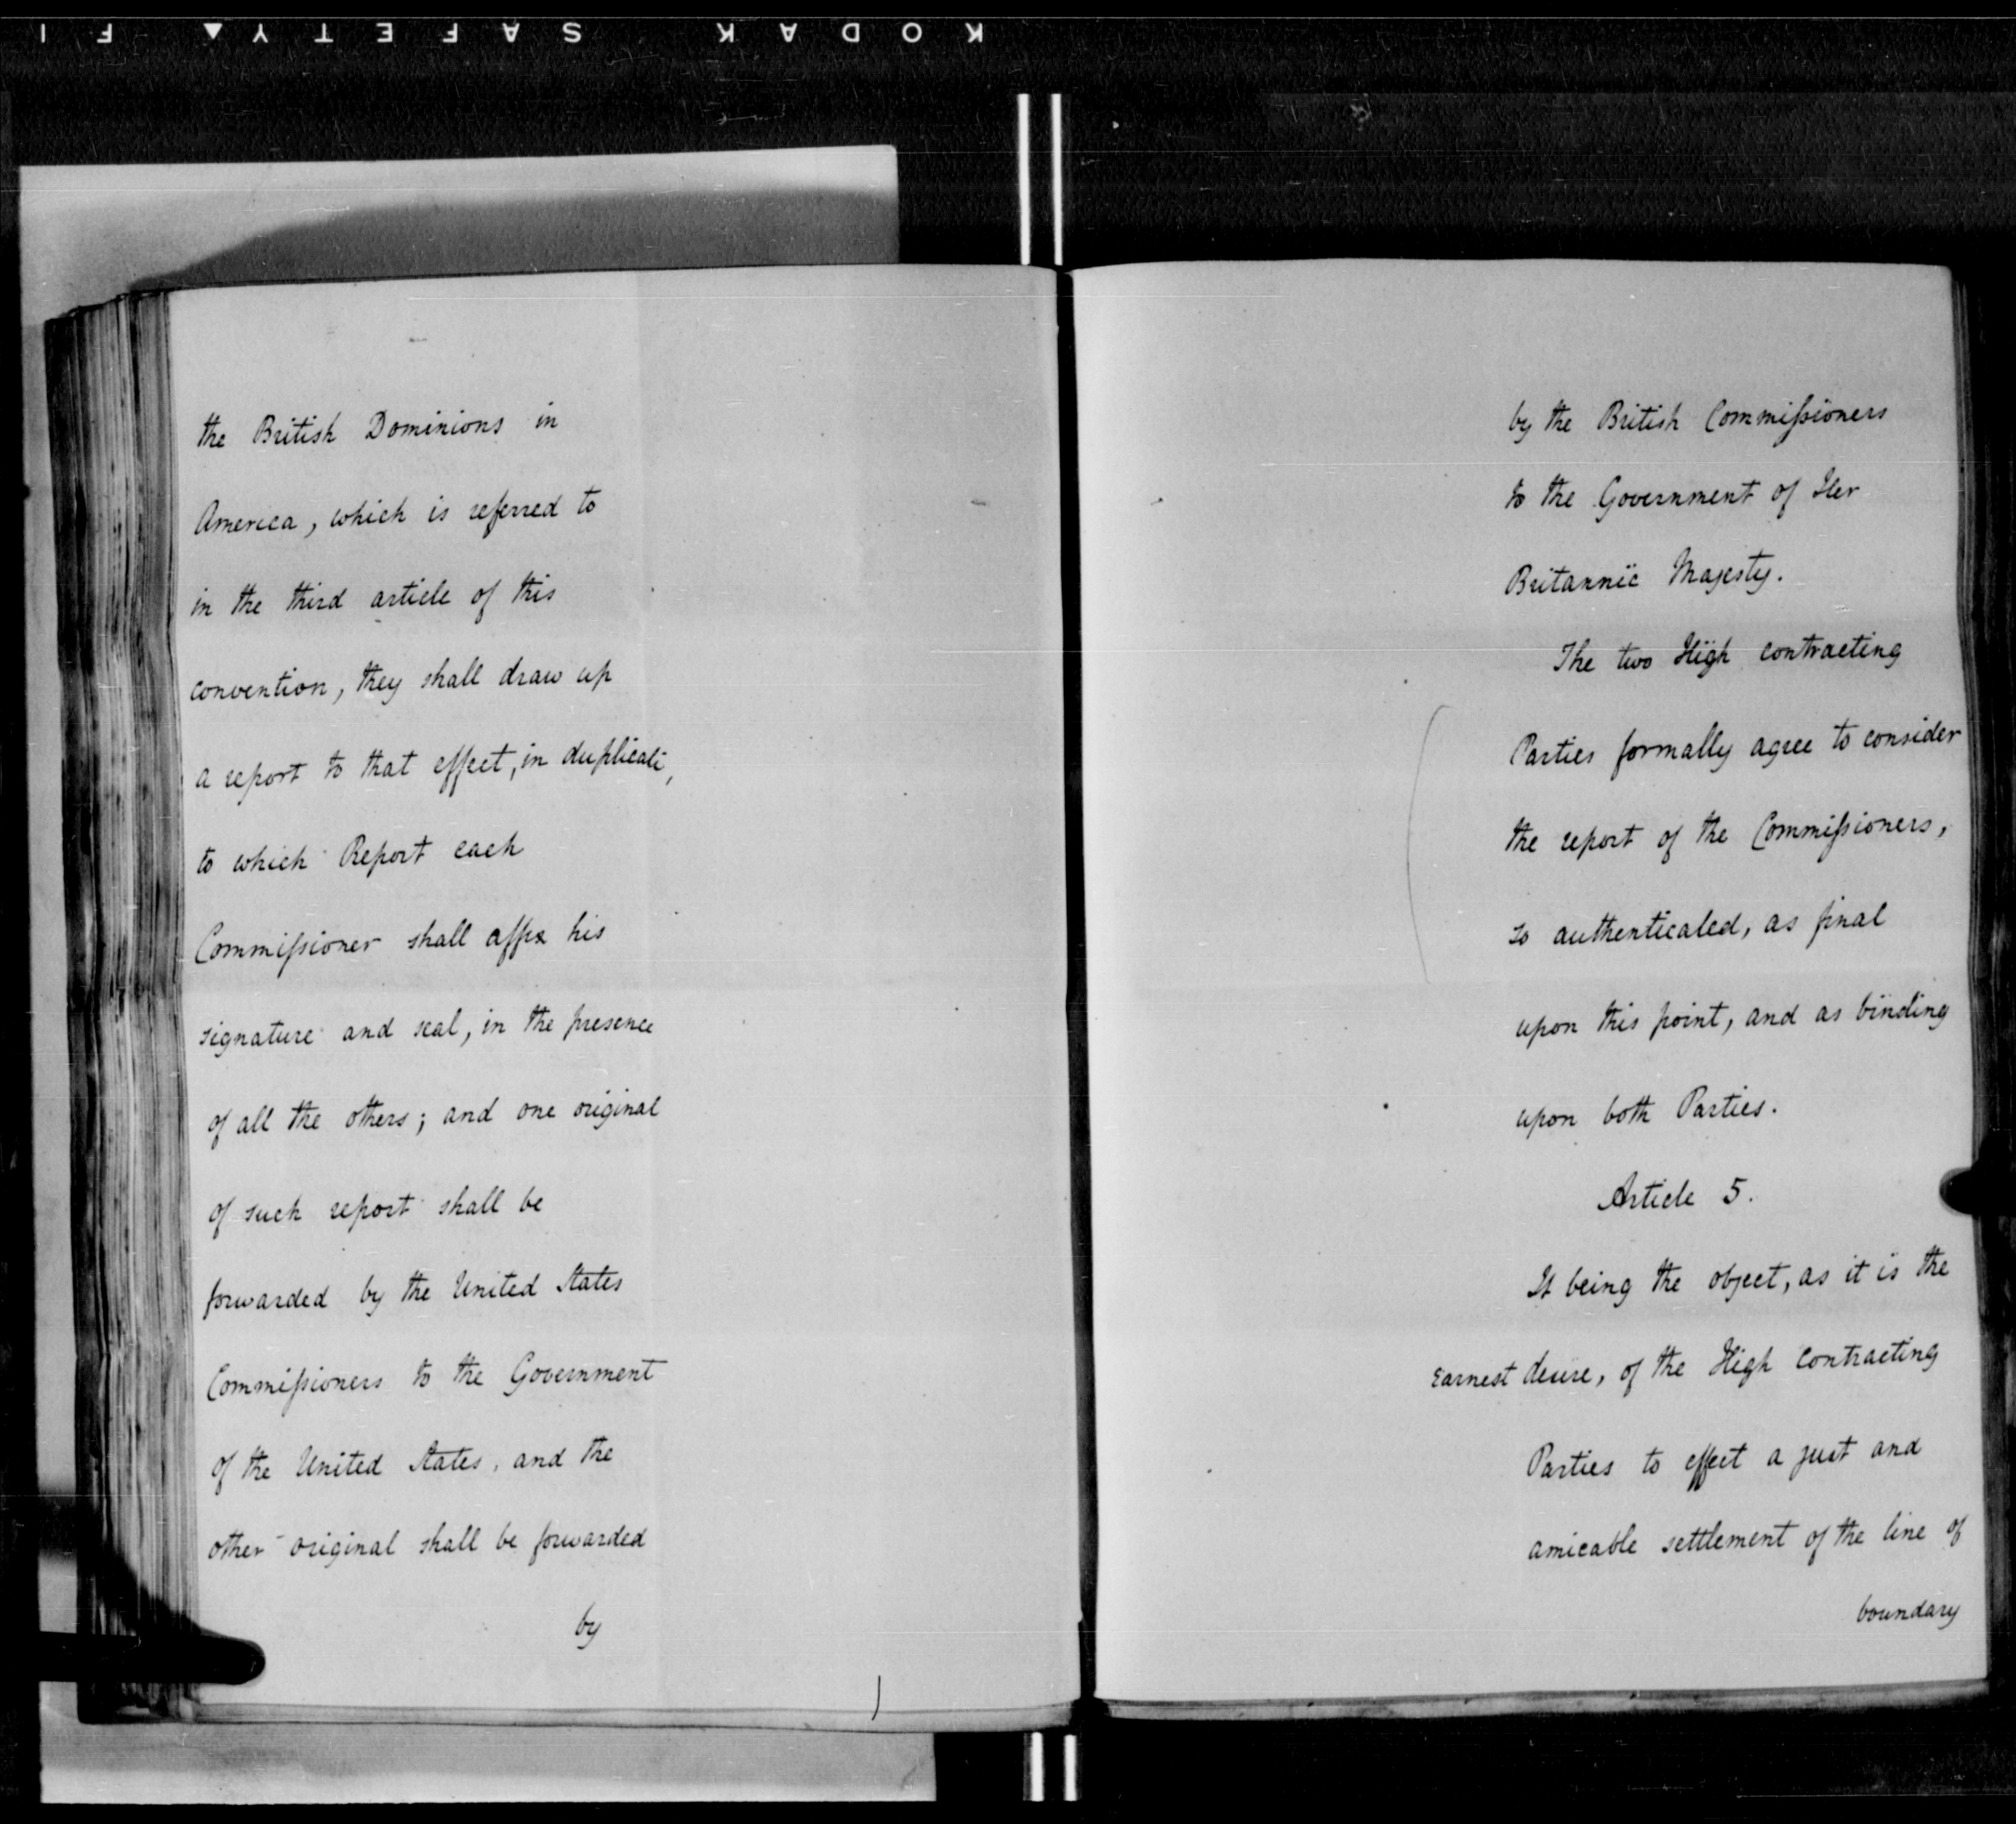 KODAK SAFETY ▲ FI
the British Dominions in
America, which is referred to
in the third article of this
convention, they shall draw up
a report to that effect, in duplicate,
to which Report each
Commissioner shall affix his
signature and seal, in the presence
of all the others; and one original
of such report shall be
forwarded by the United States
Commissioners to the Government
of the United States, and the
other original shall be forwarded
by
by the British Commissioners
to the Government of Her
Britannic Majesty.
The two High contracting
Parties formally agree to consider
the report of the Commissioners,
so authenticated, as final
upon this point, and as binding
upon both Parties.
Article 5.
It being the object, as it is the
earnest desire, of the High Contracting
Parties to effect a just and
amicable settlement of the line of
boundary